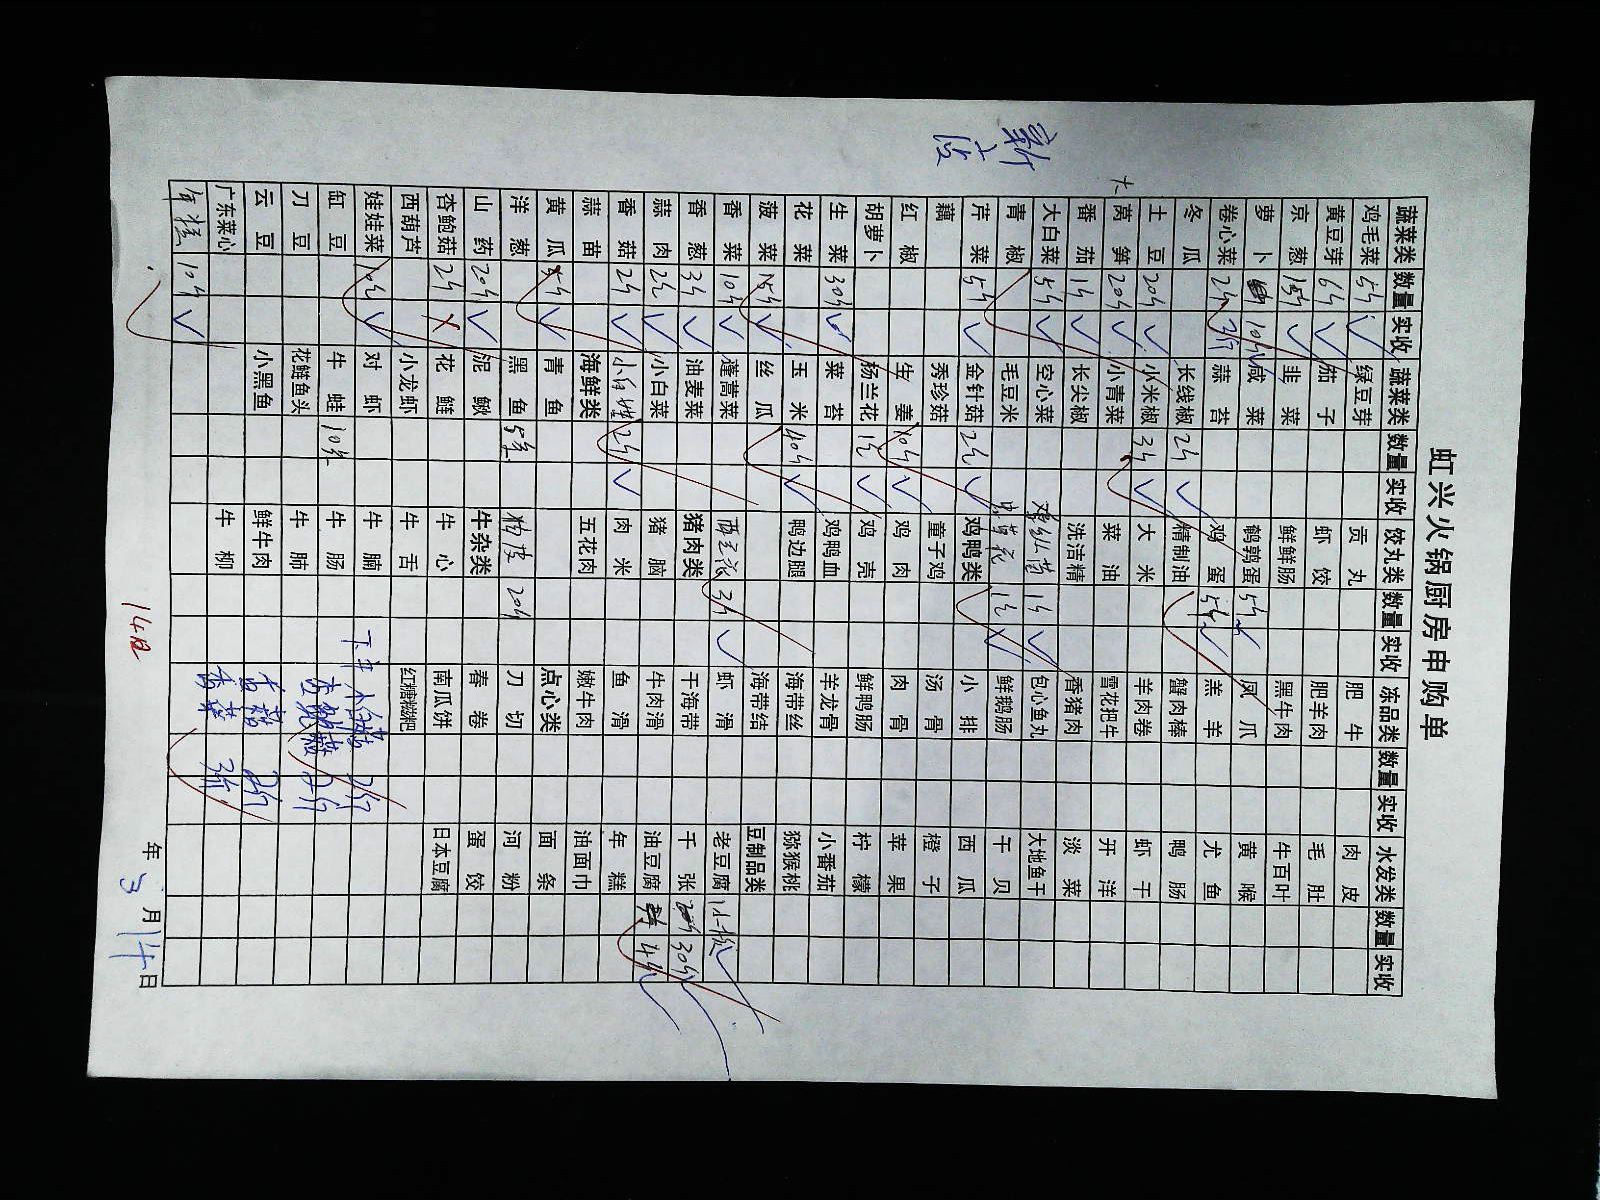 新
虹兴火锅厨房申购单
蔬菜类 数量 实收 蔬菜类 数量 实收 饺丸类 数量 实收 冻品类 数量 实收 水发类 数量 实收
鸡毛菜 5斤 ✓ 绿豆芽 贡丸 肥牛 肉皮
黄豆芽 6斤 ✓ 茄子 虾饺 肥羊肉 毛肚
京葱 15斤 ✓ 韭菜 鲜鲜肠 黑牛肉 牛百叶
萝卜 10斤 ✓ 咸菜 鹌鹑蛋 5斤 ✓ 凤爪 黄喉
卷心菜 2斤 3斤 蒜苔 鸡蛋 5斤 ✓ 羔羊 尤鱼
冬瓜 长线椒 2斤 ✓ 精制油 蟹肉棒 鸭肠
土豆 20斤 ✓ 小米椒 3斤 ✓ 大米 羊肉卷 虾干
大莴笋 20斤 ✓ 小青菜 菜油 雪花把牛 开洋
番茄 1斤 ✓ 长尖椒 洗洁精 香猪肉 淡菜
大白菜 5斤 ✓ 空心菜 1斤 ✓ 包心鱼丸 大地鱼干
青椒 毛豆米 虫草花 1斤 ✓ 鲜鹅肠 干贝
芹菜 5斤 ✓ 金针菇 2斤 ✓ 鸡鸭类 小排 西瓜
藕 秀珍菇 童子鸡 汤骨 橙子
红椒 生姜 10斤 ✓ 鸡肉 肉骨 苹果
胡萝卜 杨兰花 1斤 ✓ 鸡壳 鲜鸭肠 柠檬
生菜 30斤 ✓ 菜苔 鸡鸭血 羊龙骨 小番茄
花菜 玉米 40斤 ✓ 鸭边腿 海带丝 猕猴桃
菠菜 15斤 ✓ 丝瓜 海带结 豆制品类
香菜 10斤 ✓ 蓬蒿菜 3斤 ✓ 虾滑 老豆腐 1板 ✓
香葱 3斤 ✓ 油麦菜 猪肉类 干海带 千张 30斤 ✓
蒜肉 2斤 ✓ 小白菜 猪脑 牛肉滑 油豆腐 4斤 ✓
香菇 2斤 ✓ 2斤 ✓ 肉米 鱼滑 年糕
蒜苗 海鲜类 五花肉 嫩牛肉 油面巾
黄瓜 ✓ 青鱼 点心类 面条
洋葱 黑鱼 5条 猪皮 20斤 刀切 河粉
山药 20斤 ✓ 泥鳅 牛杂类 春卷 蛋饺
杏鲍菇 2斤 ✗ 花鲢 牛心 南瓜饼 日本豆腐
西葫芦 小龙虾 牛舌 红糖糍粑
娃娃菜 10斤 ✓ 对虾 牛腩 下午 2斤
缸豆 牛蛙 牛肠
刀豆 花鲢鱼头 牛肺
云豆 小黑鱼 鲜牛肉 香菇 2斤
广东菜心 牛柳 香菜 3斤
年糕 10斤 ✓
14日
年3月14日